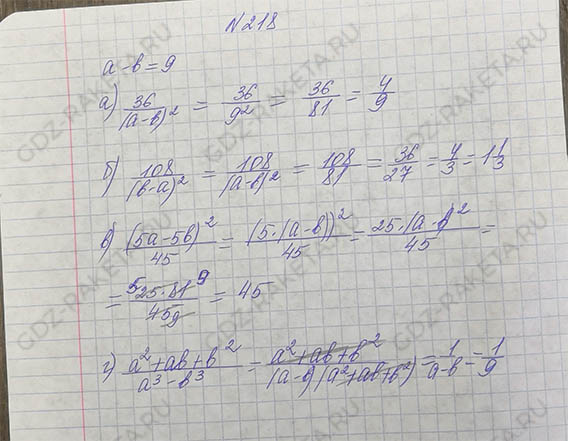 N218
a-b=9
а) 36/(a-b)² = 36/9² = 36/81 = 4/9
б) 108/(b-a)² = 108/(a-b)² = 108/81 = 36/27 = 4/3 = 1 1/3
в) (5a-5b)²/45 = (5·(a-b))²/45 = 25·(a-b)²/45 =
= 5 25·81 9/45 9 = 45
г) a²+ab+b²/a³-b³ = a²+ab+b²/(a-b)(a²+ab+b²) = 1/a-b = 1/9
GDZ-RAKETA.RU